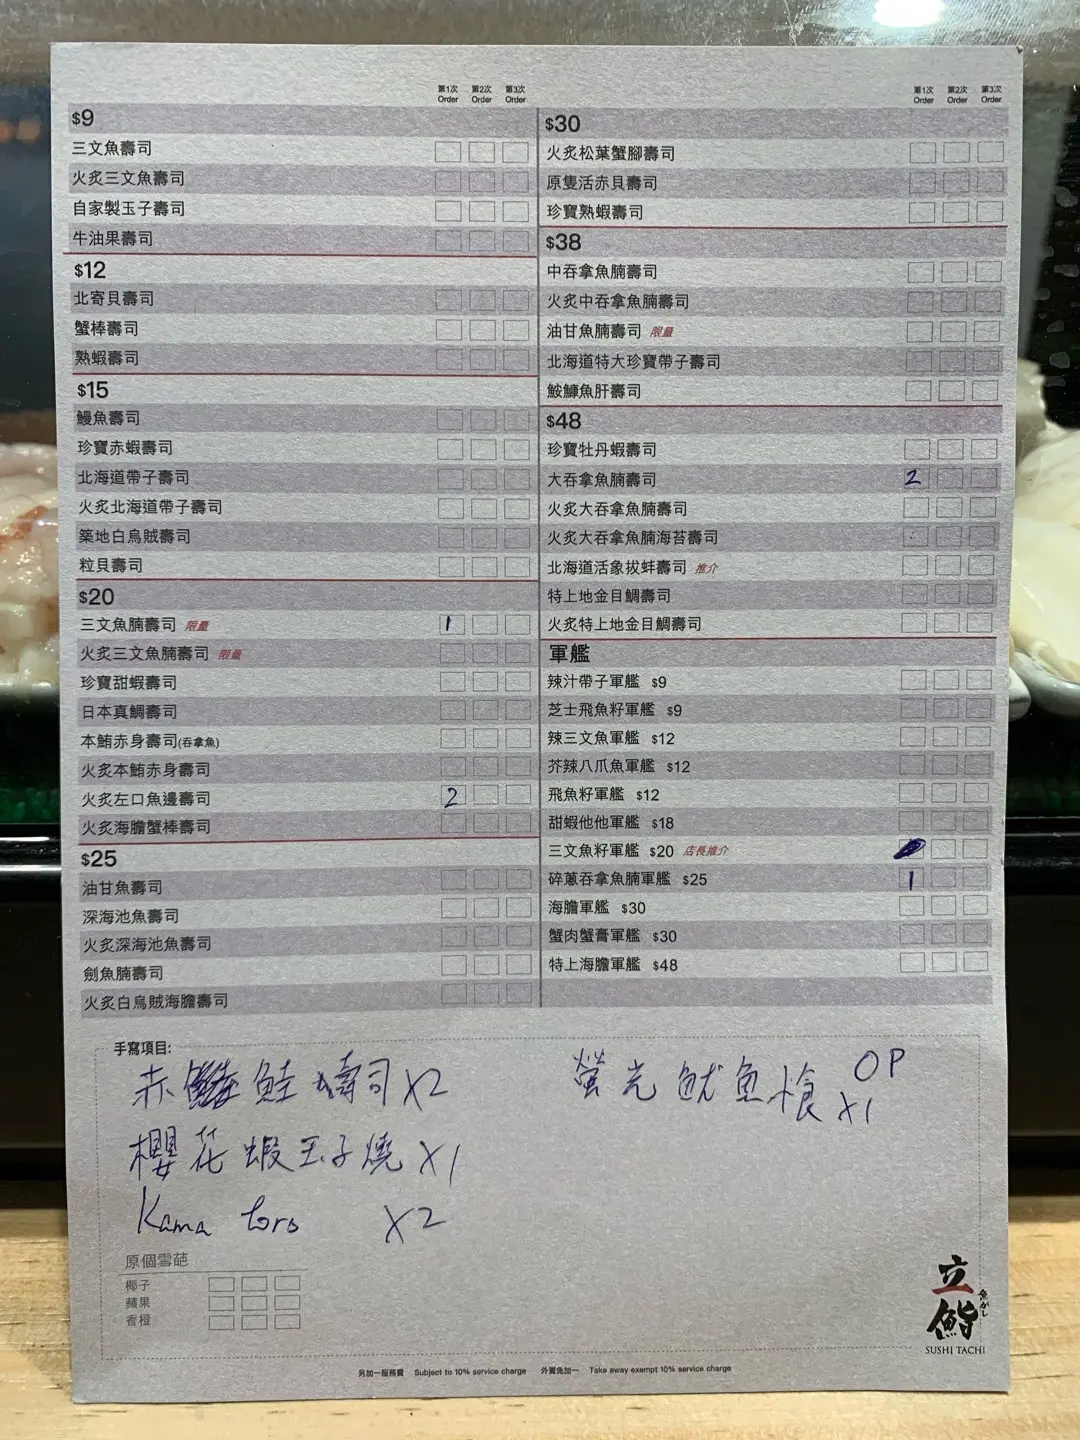 第1次 第2次 第3次
Order Order Order
$9
三文魚壽司
火炙三文魚壽司
自家製玉子壽司
牛油果壽司
$12
北寄貝壽司
蟹棒壽司
熟蝦壽司
$15
鰻魚壽司
珍寶赤蝦壽司
北海道帶子壽司
火炙北海道帶子壽司
築地白烏賊壽司
粒貝壽司
$20
三文魚腩壽司 限量 1
火炙三文魚腩壽司 限量
珍寶甜蝦壽司
日本真鯛壽司
本鮪赤身壽司(吞拿魚)
火炙本鮪赤身壽司
火炙左口魚邊壽司 2
火炙海膽蟹棒壽司
$25
油甘魚壽司
深海池魚壽司
火炙深海池魚壽司
劍魚腩壽司
火炙白烏賊海膽壽司
第1次 第2次 第3次
Order Order Order
$30
火炙松葉蟹腳壽司
原隻活赤貝壽司
珍寶熟蝦壽司
$38
中吞拿魚腩壽司
火炙中吞拿魚腩壽司
油甘魚腩壽司 限量
北海道特大珍寶帶子壽司
鮟鱇魚肝壽司
$48
珍寶牡丹蝦壽司
大吞拿魚腩壽司 2
火炙大吞拿魚腩壽司
火炙大吞拿魚腩海苔壽司
北海道活象拔蚌壽司 推介
特上地金目鯛壽司
火炙特上地金目鯛壽司
軍艦
辣汁帶子軍艦 $9
芝士飛魚籽軍艦 $9
辣三文魚軍艦 $12
芥辣八爪魚軍艦 $12
飛魚籽軍艦 $12
甜蝦他他軍艦 $18
三文魚籽軍艦 $20 店長推介
碎蔥吞拿魚腩軍艦 $25 1
海膽軍艦 $30
蟹肉蟹膏軍艦 $30
特上海膽軍艦 $48
手寫項目:
赤 鮭 壽司 X2
櫻花蝦玉子燒 X1
Kama toro X2
螢光魷魚 OP
X1
原個雪葩
椰子
蘋果
香橙
立
鮨
魚がし
SUSHI TACHI
另加一服務費 Subject to 10% service charge 外賣免加一 Take away exempt 10% service charge